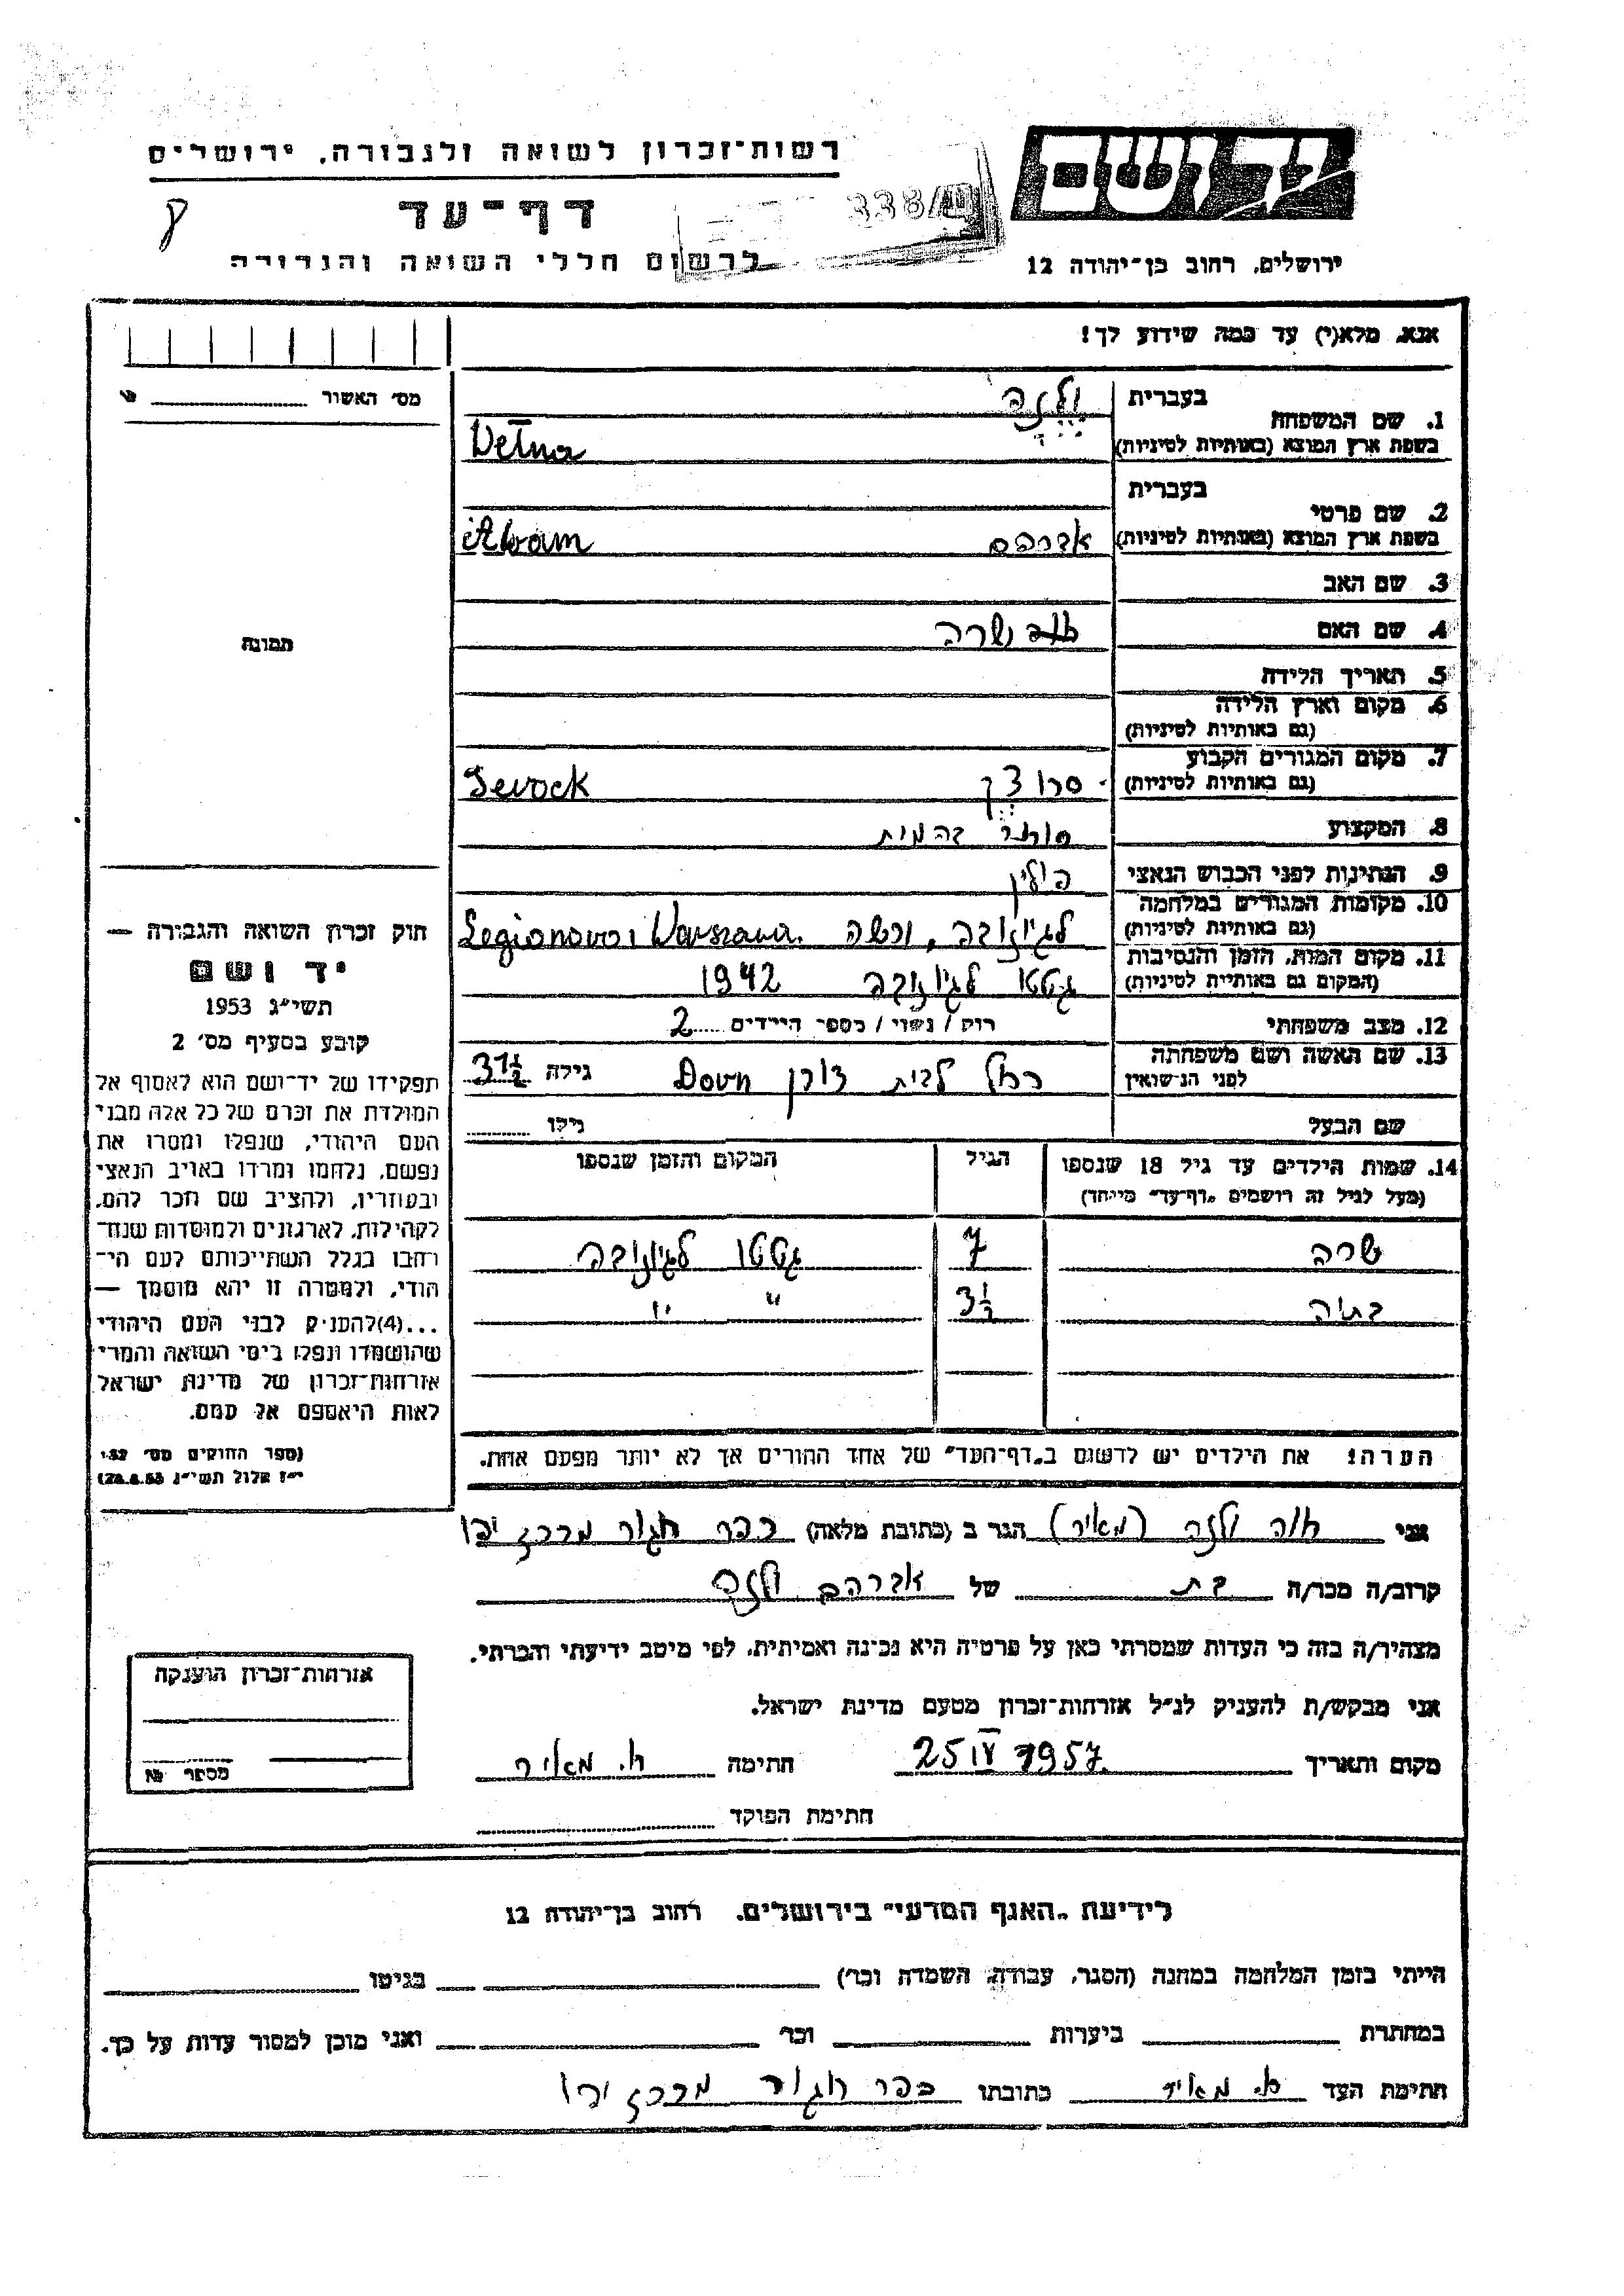 רשות-זכרון לשואה ולגבורה, ירושלים
יד ושם
דף-עד
לרשום חללי השואה והגבורה
ירושלים, רחוב בן-יהודה 12
אנא, מלא(י) עד כמה שידוע לך!
מס' האשור
1. שם המשפחה בעברית
בשפת ארץ המוצא (באותיות לטיניות)
2. שם פרטי בעברית
בשפת ארץ המוצא (באותיות לטיניות) אברהם Abram
3. שם האב
4. שם האם שרה
תמונה
5. תאריך הלידה
6. מקום וארץ הלידה
(גם באותיות לטיניות)
7. מקום המגורים הקבוע
(גם באותיות לטיניות) סרוצק Serock
8. המקצוע סוחר בהמות
9. הנתינות לפני הכבוש הנאצי פולין
10. מקומות המגורים במלחמה
(גם באותיות לטיניות) לגיונובה, ורשה Legionowo i Warszawa.
11. מקום המות, הזמן והנסיבות
(המקום גם באותיות לטיניות) גטטו לגיונובה 1942
12. מצב משפחתי רווק / נשוי / מספר הילדים 2
13. שם האשה ושם משפחתה
לפני הנשואין רחל לבית דורן Dorn גילה 37½
שם הבעל גילו
14. שמות הילדים עד גיל 18 שנספו הגיל המקום והזמן שנספו
(מעל לגיל זה רושמים "דף-עד" מיוחד)
שרה 7 גטטו לגיונובה
3½ " "
הערה! את הילדים יש לרשום ב"דף-העד" של אחד ההורים אך לא יותר מפעם אחת.
חוק זכרון השואה והגבורה —
יד ושם
תשי"ג 1953
קובע בסעיף מס' 2
תפקידו של יד-ושם הוא לאסוף אל
המולדת את זכרם של כל אלה מבני
העם היהודי, שנפלו ומסרו את
נפשם, נלחמו ומרדו באויב הנאצי
ובעוזריו, ולהציב שם וזכר להם,
לקהילות, לארגונים ולמוסדות שנח-
רבו בגלל השתייכותם לעם הי-
הודי, ולמטרה זו יהא מוסמך —
...(4) להעניק לבני העם היהודי
שהושמדו ונפלו בימי השואה והמרי
אזרחות-זכרון של מדינת ישראל
לאות היאספם אל עמם.
(ספר החוקים מס' 132
י"ז אלול תשי"ג 28.8.53)
אני חוה ולנה (מאיר) הגר ב (כתובת מלאה) כפר חגור מרכז יפו
קרוב/ה מכר/ה בת של אברהם ולנה
מצהיר/ה בזה כי העדות שמסרתי כאן על פרטיה היא נכונה ואמיתית, לפי מיטב ידיעתי והכרתי.
אני מבקש/ת להעניק לנ"ל אזרחות-זכרון מטעם מדינת ישראל.
מקום ותאריך 25 IV 1957 חתימה ח. מאיר
חתימת הפוקד
אזרחות-זכרון הוענקה
מספר №
לידיעת "האגף המדעי" בירושלים, רחוב בן-יהודה 12
הייתי בזמן המלחמה במחנה (הסגר, עבודה, השמדה וכו') בגיטו
במחתרת ביערות וכו' ואני מוכן למסור עדות על כך.
חתימת העד ח. מאיר כתובתו כפר חגור מרכז יפו